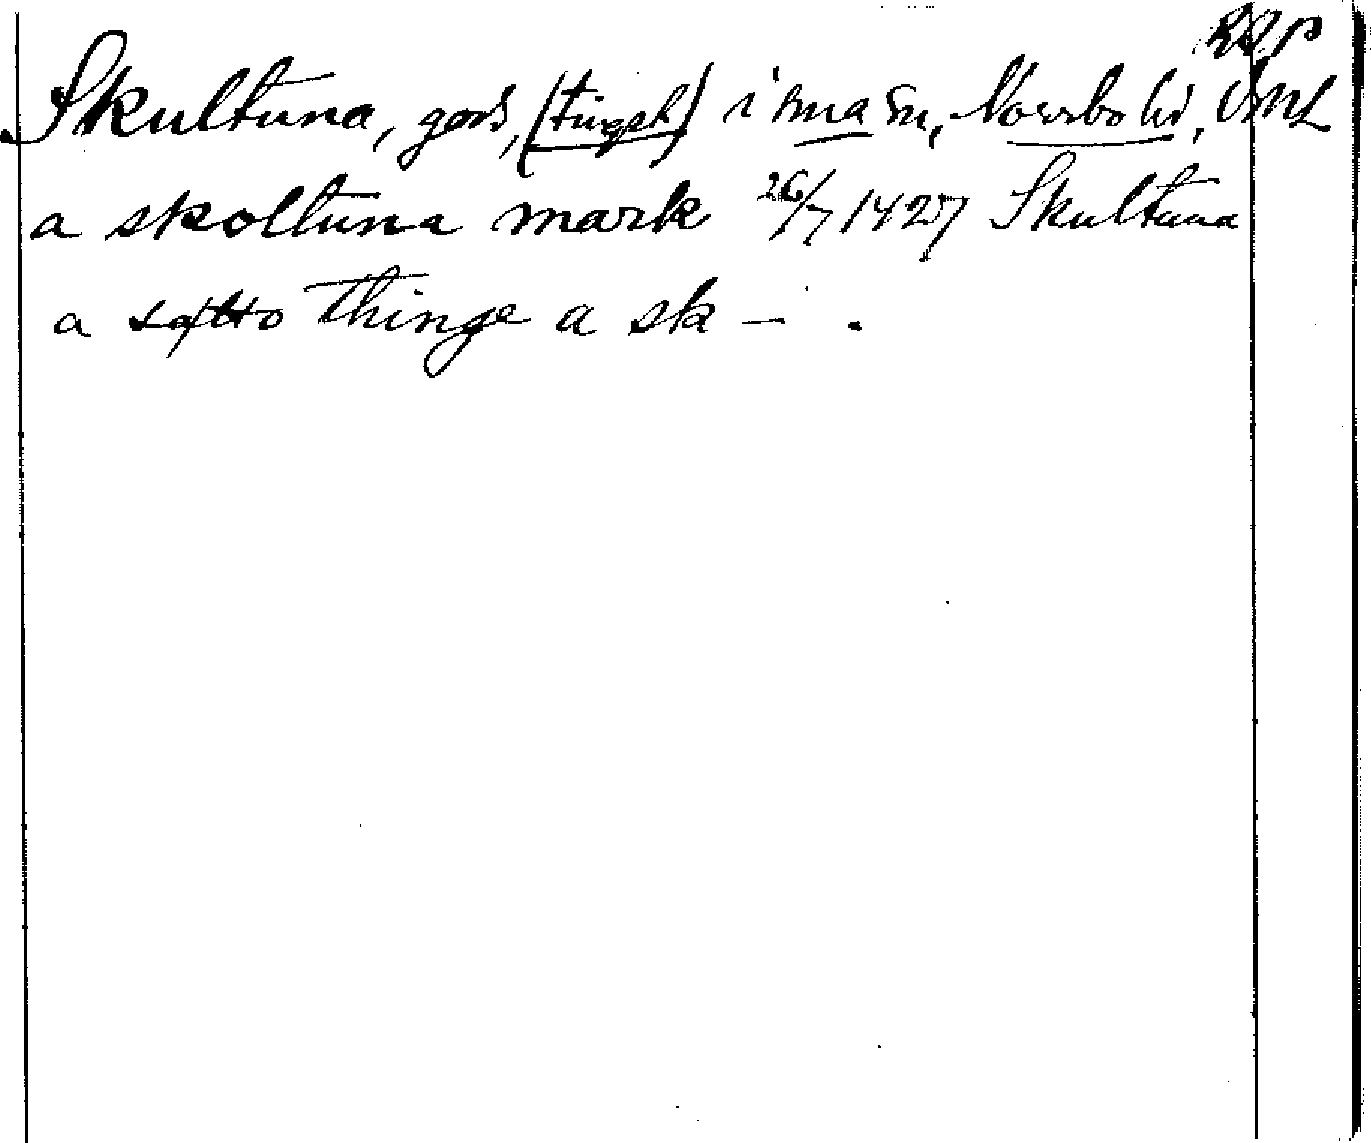 Skultuna, gods, (tingspl) i sma sn, Norrbo hd, VML
a skoltuna mark 26/7 1427 Skultuna
a satto thinge a sk – .